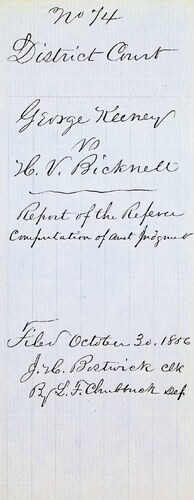 No 74
District Court
George Keeney
vs
H. V. Bicknell
Report of the Referee
Computation of amt Judgmet
Filed October 30. 1856
J. H. Bostwick Clk
By L. F. Chubbuck Dep.